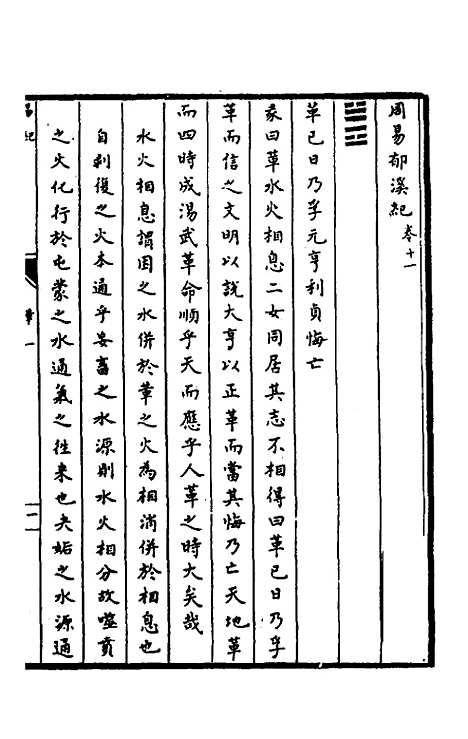 周易郁溪紀卷十一
革已日乃孚元亨利貞悔亡
彖曰革水火相息二女同居其志不相得曰革已日乃孚
革而信之文明以說大亨以正革而當其悔乃亡天地革
而四時成湯武革命順乎天而應乎人革之時大矣哉
水火相息謂困之水併於革之火為相消併於相息也
自剥復之火本通乎妄畜之水源則水火相分故噬賁
之火化行於屯蒙之水通氣之往來也夬姤之水源通
革一